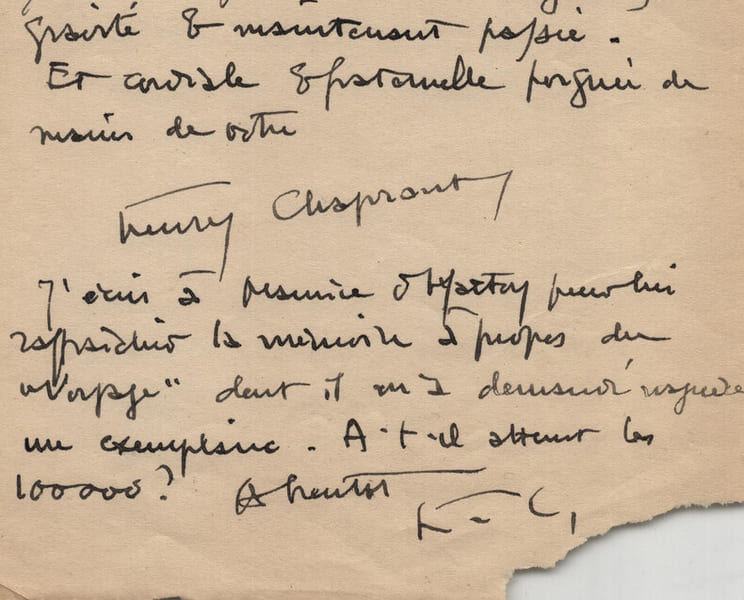 gravité & maintenant passée.
Et cordiale & fraternelle poignée de
mains de votre
Henry Chaprout
J'écris à Maurice pour lui
rafraichir la mémoire à propos du
dont il m'a demandé naguère
un exemplaire. A-t-il atteint les
100000? A bientôt
H-C,